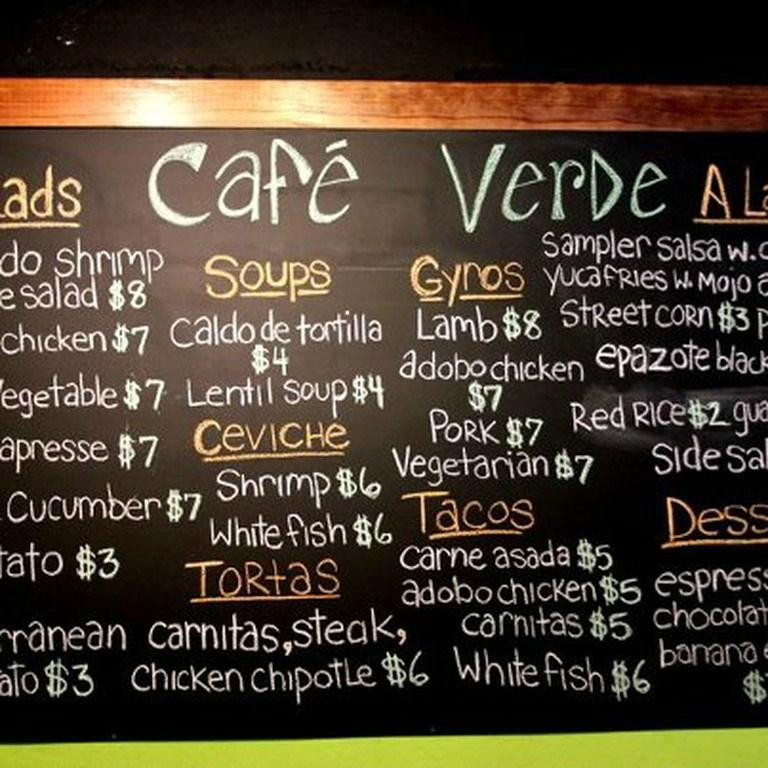 Café Verde
lads
do shrimp
e salad $8
chicken $7
Vegetable $7
apresse $7
Cucumber $7
tato $3
rranean
ato $3
Soups
Caldo de tortilla
$4
Lentil Soup $4
Ceviche
Shrimp $6
White fish $6
Tortas
carnitas, steak,
chicken chipotle $6
Gyros
Lamb $8
adobo chicken
$7
Pork $7
Vegetarian $7
Tacos
carne asada $5
adobo chicken $5
carnitas $5
White fish $6
A La
Sampler salsa w. c
Yuca Fries w. Mojo a
Street corn $3 p
epazote black
Red Rice $2 gua
Side Sal
Dess
espress
chocolat
banana e
$